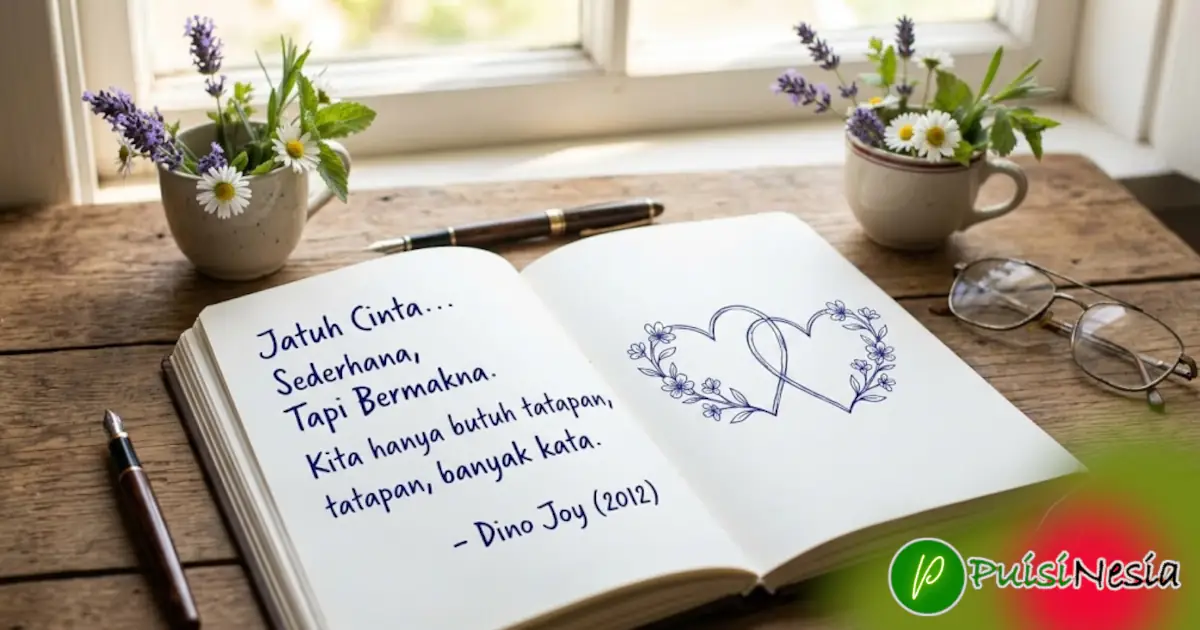 Jatuh Cinta...
Sederhana,
Tapi Bermakna.
Kita hanya butuh tatapan,
tatapan, banyak kata.
– Dino Joy (2012)
PuisiNesia